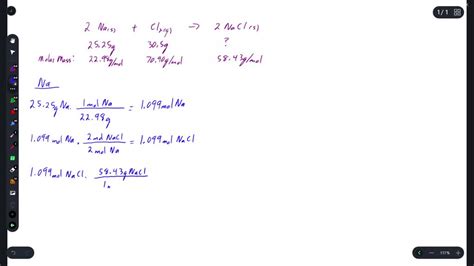 1 / 1
2 Na(s) + Cl2(g) → 2 NaCl(s)
25.25g 30.5g ?
Molar Mass: 22.98g/mol 70.90g/mol 58.43g/mol
Na
25.25g Na · 1 mol Na / 22.98g = 1.099 mol Na
1.099 mol Na · 2 mol NaCl / 2 mol Na = 1.099 mol NaCl
1.099 mol NaCl · 58.43g NaCl / 1